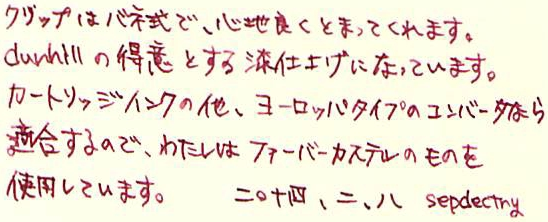 クリップはバネ式で、心地良くとまってくれます。
dunhillの得意とする漆仕上げになっています。
カートリッジインクの他、ヨーロッパタイプのコンバータなら
適合するので、わたしはファーバーカステルのものを
使用しています。　二〇十四、二、八 sepdectny